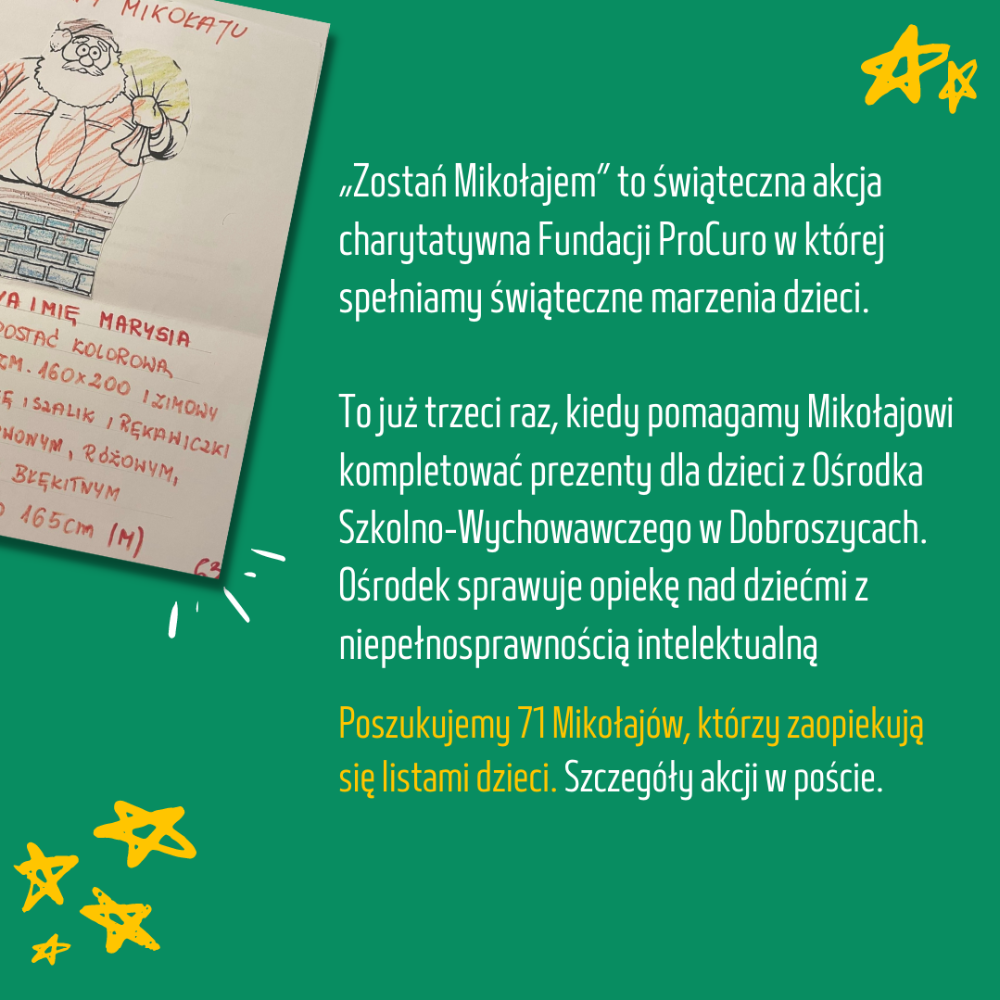 MIKOŁAJU
IMIĘ MARYSIA
DOSTAĆ KOLOROWĄ
160x200 I ZIMOWY
I SZALIK I RĘKAWICZKI
RÓŻOWYM,
BŁĘKITNYM
165cm (M)
„Zostań Mikołajem” to świąteczna akcja
charytatywna Fundacji ProCuro w której
spełniamy świąteczne marzenia dzieci.
To już trzeci raz, kiedy pomagamy Mikołajowi
kompletować prezenty dla dzieci z Ośrodka
Szkolno-Wychowawczego w Dobroszycach.
Ośrodek sprawuje opiekę nad dziećmi z
niepełnosprawnością intelektualną
Poszukujemy 71 Mikołajów, którzy zaopiekują
się listami dzieci. Szczegóły akcji w poście.